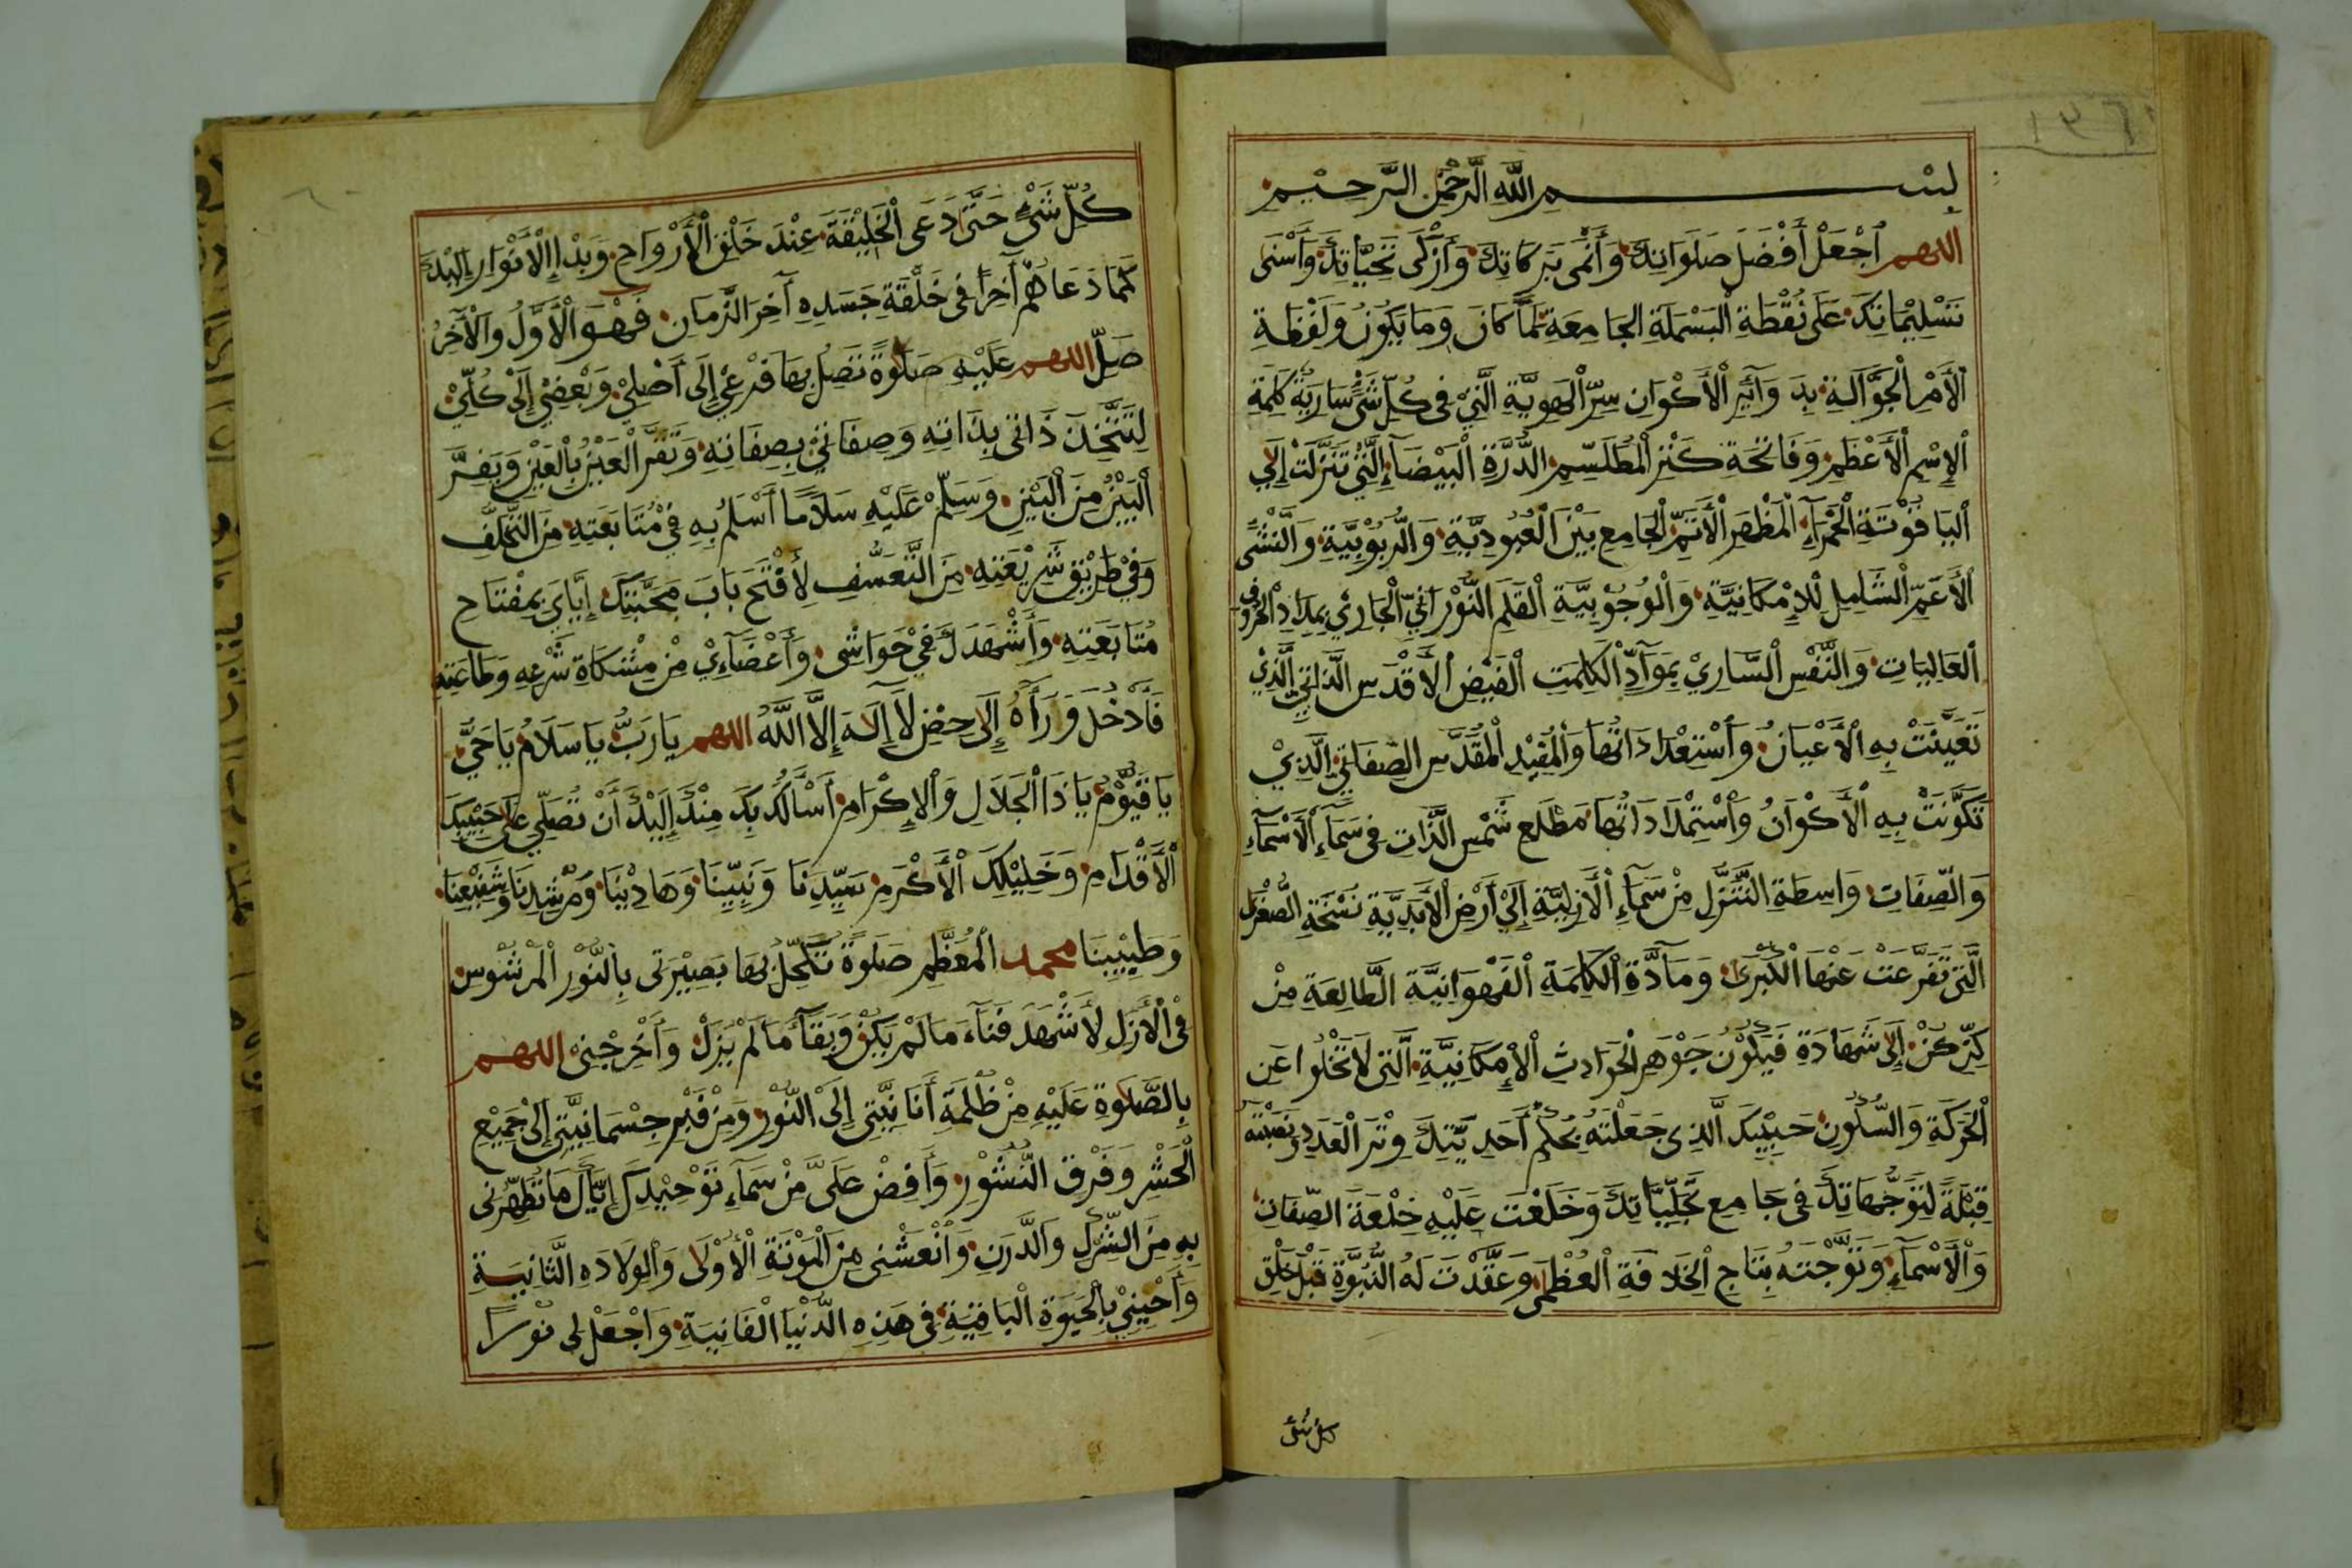 بِسْمِ اللّٰهِ الرَّحْمٰنِ الرَّحِيْمِ
اللهم اجْعَلْ أَفْضَلَ صَلَوَاتِكَ وَأَنْمَى بَرَكَاتِكَ وَأَزْكَى تَحِيَّاتِكَ وَأَسْنَى
تَسْلِيْمَاتِكَ عَلَى نُقْطَةِ الْبَسْمَلَةِ الجَامِعَةِ لِمَا كَانَ وَمَا يَكُوْنُ وَلَفْظَةِ
الْأَمْرِ الْجَوَّالَةِ بِدَوَآئِرِ الْأَكْوَانِ سِرِّ الْهَوِيَّةِ الَّتِيْ فِى كُلِّ شَىْءٍ سَارِيَةٌ كَلِمَةِ
الْاِسْمِ الْأَعْظَمِ وَفَاتِحَةِ كَنْزِ الْمُطَلْسَمِ الدُّرَّةِ الْبَيْضَآءِ الَّتِيْ تَنَزَّلَتْ إِلَى
الْيَاقُوْتَةِ الْحَمْرَآءِ الْمَظْهَرِ الْأَتَمِّ الْجَامِعِ بَيْنَ الْعُبُودِيَّةِ وَالرُّبُوْبِيَّةِ وَالنَّشْئِ
الْأَعَمِّ الشَّامِلِ لِلْإِمْكَانِيَّةِ وَالْوُجُوْبِيَّةِ الْقَلَمِ النُّوْرَانِيِّ الْجَارِيْ بِمِدَادِ الْحُرُوفِ
الْعَالِيَاتِ وَالنَّفَسِ السَّارِيْ بِمَوَآدِّ الْكَلِمَتِ الْفَيْضِ الْأَقْدَسِ الذَّاتِيِّ الَّذِيْ
تَعَيَّنَتْ بِهِ الْأَعْيَانُ وَاسْتِعْدَادَاتُهَا وَالْفَيْضِ الْمُقَدَّسِ الصِّفَاتِيِّ الَّذِيْ
تَكَوَّنَتْ بِهِ الْأَكْوَانُ وَاسْتِمْدَادَاتُهَا مَطْلَعِ شَمْسِ الذَّاتِ فِى سَمَآءِ الْأَسْمَآءِ
وَالصِّفَاتِ وَاسِطَةِ التَّنَزُّلِ مِنْ سَمَآءِ الْأَزَلِيَّةِ إِلَىْ أَرْضِ الْأَبَدِيَّةِ نُسْخَةِ الصُّغْرَى
الَّتِى تَفَرَّعَتْ عَنْهَا الْكُبْرَى وَمَآدَّةِ الْكَلِمَةِ الْفَهْوَانِيَّةِ الطَّالِعَةِ مِنْ
كِنِّ كُنْ إِلَى شَهَادَةِ فَيَكُوْنُ جَوْهَرِ الْحَوَادِثِ الْإِمْكَانِيَّةِ الَّتِى لَا تَخْلُوا عَنِ
الْحَرَكَةِ وَالسُّكُوْنِ حَبِيْبِكَ الَّذِى جَعَلْتَهُ بِحُكْمِ أَحَدِيَّتِكَ وِتْرَ الْعَدَدِ وَنَصَبْتَهُ
قِبْلَةً لِتَوَجُّهَاتِكَ فِى جَامِعِ تَجَلِّيَّاتِكَ وَخَلَعْتَ عَلَيْهِ خِلْعَةَ الصِّفَاتِ
وَالْأَسْمَآءِ وَتَوَّجْتَهُ بِتَاجِ الْخِلَافَةِ الْعُظْمَى وَعَقَّدْتَ لَهُ النُّبُوَّةَ قَبْلَ خَلْقِ
كل شئ
كُلِّ شَىْءٍ حَتَّى دَعَى الْخَلِيْقَةَ عِنْدَ خَلْقِ الْأَرْوَاحِ وَبَدْإِ الْأَنْوَارِ إِلَيْكَ
كَمَا دَعَاهُمْ آخِرًا فِى خَلْقَةِ جَسَدِهِ آخِرَ الزَّمَانِ فَهُوَ الْأَوَّلُ وَالْآخِرُ
صَلِّ اللهم عَلَيْهِ صَلٰوةً تَصِلُ بِهَا فَرْعِيْ إِلَى أَصْلِيْ وَبَعْضِيْ إِلَىْ كُلِّيْ
لِتَتَّحِدَ ذَاتِى بِذَاتِهِ وَصِفَاتِيْ بِصِفَاتِهِ وَتَقَرَّ الْعَيْنُ بِالْعَيْنِ وَيَفِرَّ
الْبَيْنُ مِنَ الْبَيْنِ وَسَلِّمْ عَلَيْهِ سَلَامًا أَسْلَمُ بِهِ فِيْ مُتَابَعَتِهِ مِنَ التَّخَلُّفِ
وَفِيْ طَرِيْقِ شَرِيْعَتِهِ مِنَ التَّعَسُّفِ لِأَفْتَحَ بَابَ مَحَبَّتِكَ إِيَّايَ بِمِفْتَاحِ
مُتَابَعَتِهِ وَأَشْهَدَكَ فِيْ حَوَاسِّى وَأَعْضَآءِيْ مِنْ مِشْكَاةِ شَرْعِهِ وَطَاعَتِهِ
فَأَدْخُلَ وَرَآءَهُ إِلَى حِصْنِ لَآ إِلَهَ إِلَّا اللَّهُ اللهم يَا رَبُّ يَا سَلَامُ يَا حَيُّ
يَا قَيُّوْمُ يَا ذَا الْجَلَالِ وَالْإِكْرَامِ أَسْأَلُكَ بِكَ مِنْكَ إِلَيْكَ أَنْ تُصَلِّيَ عَلَى حَبِيْبِكَ
الْأَقْدَامِ وَخَلِيْلِكَ الْأَكْرَمِ سَيِّدِنَا وَنَبِيِّنَا وَهَادِيْنَا وَمُرْشِدِنَا وَشَفِيْعِنَا
وَطَبِيْبِنَا محمد الْمُعَظَّمِ صَلٰوةً تُكَحِّلُ بِهَا بَصِيْرَتِى بِالنُّوْرِ الْمَرْشُوْسِ
فِى الْأَزَلِ لِأَشْهَدَ فَنَآءَ مَا لَمْ يَكُنْ وَبَقَآءَ مَا لَمْ يَزَلْ وَأَخْرِجْنِيْ اللهم
بِالصَّلٰوةِ عَلَيْهِ مِنْ ظُلْمَةِ أَنَانِيَّتِى إِلَى النُّوْرِ وَمِنْ قَبْرِ جِسْمَانِيَّتِى إِلَىْ جَمِيْعِ
الْحَشْرِ وَفَرْقِ النُّشُوْرِ وَأَفِضْ عَلَىَّ مِنْ سَمَآءِ تَوْحِيْدِكَ إِيَّاكَ مَا تُطَهِّرُنِى
بِهِ مِنَ الشِّرْكِ وَالدَّرَنِ وَأَنْعِشْنِى مِنَ الْمَوْتَةِ الْأُوْلَى وَالْوِلَادَهِ الثَّانِيَةِ
وَأَحْيِنِيْ بِالْحَيٰوةِ الْبَاقِيَةِ فِى هَذِهِ الدُّنْيَا الْفَانِيَةِ وَاجْعَلْ لِى نُوْرًا